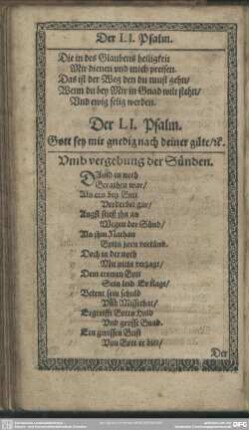 Der LI. Psalm.
Die in des Glaubens heiligkeit
Mir dienen vnd mich preisen.
Das ist der Weg den du must gehn/
Wenn du bey Mir in Gnad wilt stehn/
Vnd ewig selig werden.
Der LI. Psalm.
Gott sey mir gnedig nach deiner güte/ꝛc.
Vmb vergebung der Sünden.
David in noth
Gerathen war/
Als er bey Gott
Verderbet gar/
Angst stieß ihn an
Wegen der Sünd/
Nathan
Gotts zorn verkünd.
Doch in der noth
Mit nicht verzagt/
Dem trewen Gott
Sein leid Er klagt/
Bekent sein schuld
Vnd Missethat/
Ergreifft Gottes Huld
Vnd grosse Gnad.
Ein gewissen Geist
Von Gott er bitt/
Der